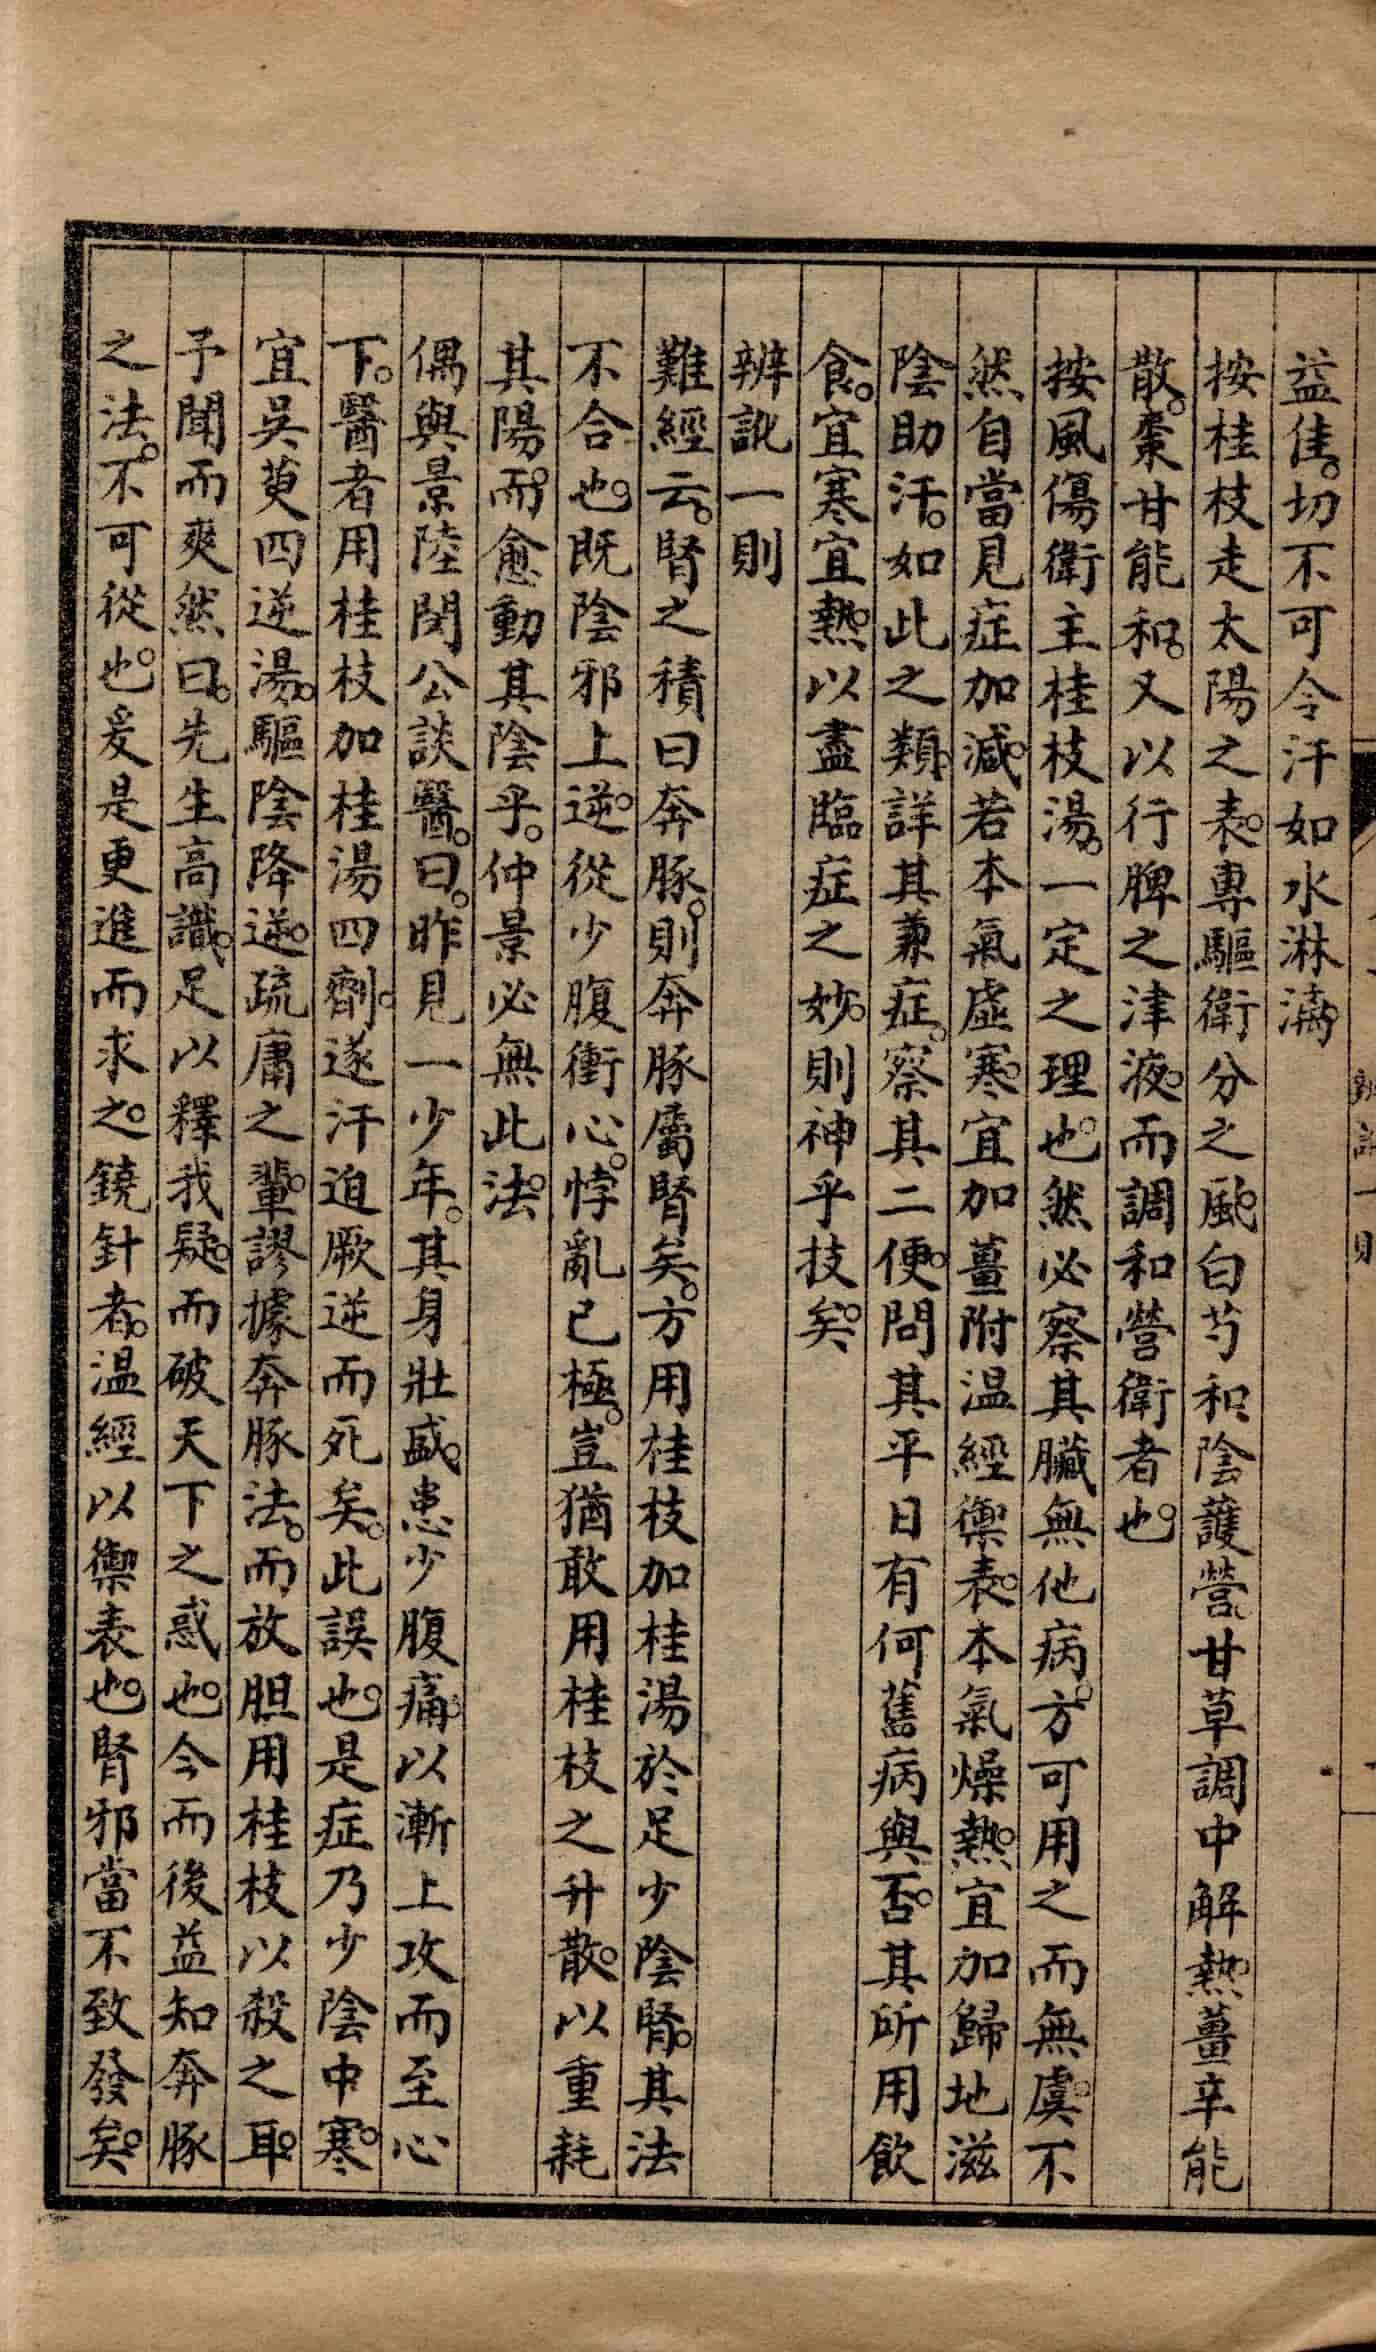 益佳。切不可令汗如水淋漓。
按桂枝走太陽之表。專驅衛分之風。白芍和陰護營。甘草調中解熱。薑辛能
散。棗甘能和。又以行脾之津液。而調和營衛者也。
按風傷衛主桂枝湯。一定之理也。然必察其臟無他病。方可用之而無虞。不
然自當見症加減。若本氣虛寒。宜加薑附溫經禦表。本氣燥熱。宜加歸地滋
陰助汗。如此之類。詳其兼症。察其二便。問其平日有何舊病與否。其所用飲
食。宜寒宜熱。以盡臨症之妙。則神乎技矣。
辨訛一則
難經云。腎之積曰奔豚。則奔豚屬腎矣。方用桂枝加桂湯於足少陰腎。其法
不合也。既陰邪上逆。從少腹衝心。悖亂已極。豈猶敢用桂枝之升散。以重耗
其陽。而愈動其陰乎。仲景必無此法。
偶與景陸閔公談醫。曰。昨見一少年。其身壯盛。患少腹痛。以漸上攻而至心
下。醫者用桂枝加桂湯四劑。遂汗迫厥逆而死矣。此誤也。是症乃少陰中寒。
宜吳萸四逆湯。驅陰降逆。疏庸之輩。謬據奔豚法。而放胆用桂枝以殺之耳。
予聞而爽然曰。先生高識。足以釋我疑。而破天下之惑也。今而後益知奔豚
之法。不可從也。爰是更進而求之。鐃針者。溫經以禦表也。腎邪當不致發矣。